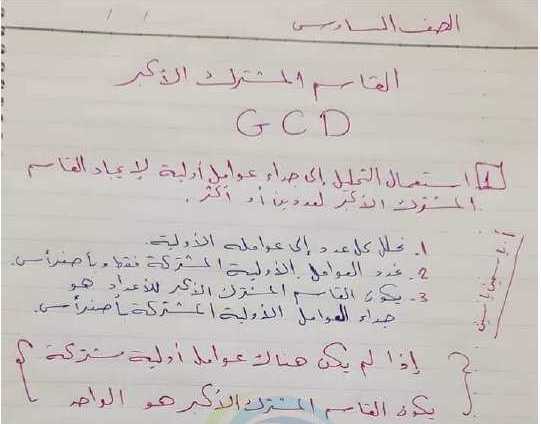 الصف السادس
القاسم المشترك الأكبر
GCD
1 استعمال التحليل إلى جداء عوامل أولية لإيجاد القاسم
المشترك الأكبر لعددين أو أكثر.
1. نحلل كل عدد إلى عوامله الأولية.
2. نحدد العوامل الأولية المشتركة فقط وبأصغر أس.
3. يكون القاسم المشترك الأكبر للأعداد هو
جداء العوامل الأولية المشتركة بأصغر أس.
{ إذا لم يكن هناك عوامل أولية مشتركة }
يكون القاسم المشترك الأكبر هو الواحد